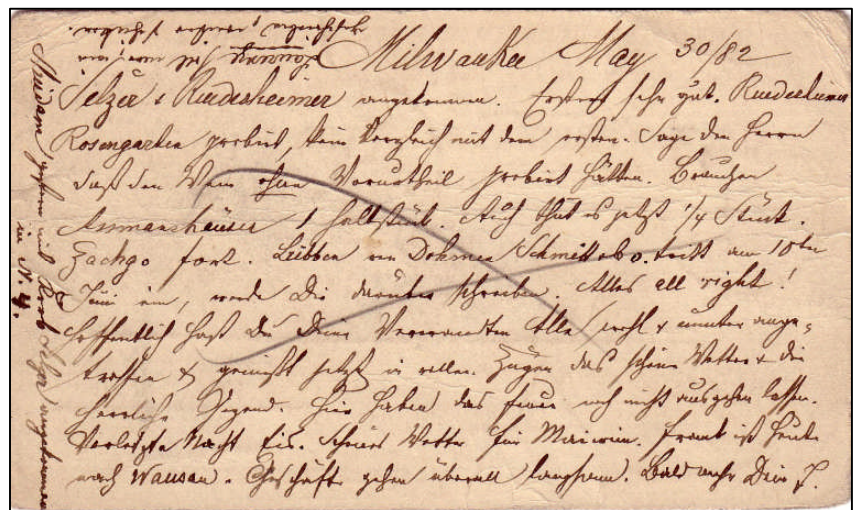 Milwaukee May 30/82
Selzer & Ruedesheimer angekommen. Erster sehr gut. Ruedesheimer
Rosengarten probirt, kein Vergleich mit dem ersten. Sage den Herren
daß den Wein ohne Vorurtheil probirt hätten. Brauchen
Assmanshäuser 1 halbstück. Auch thut es jetzt 1/4 Stück.
fort. Lübben von Dohmen Schmitt & Co. tritt am 10ten
Juni ein, werde Dir darüber schreiben. Alles all right!
Hoffentlich hast Du Deine Verwandten Alle wohl & munter ange-
troffen & genießt jetzt in vollen Zügen das schöne Wetter & die
herrliche Gegend. Hier haben das Feuer noch nicht ausgehen lassen.
Vorletzte Nacht Eis. Schönes Wetter für Maiwein. Frank ist heute
nach Wausau. Geschäfte gehen überall langsam. Bald mehr Dein
gestern mit angekommen
in N.Y.